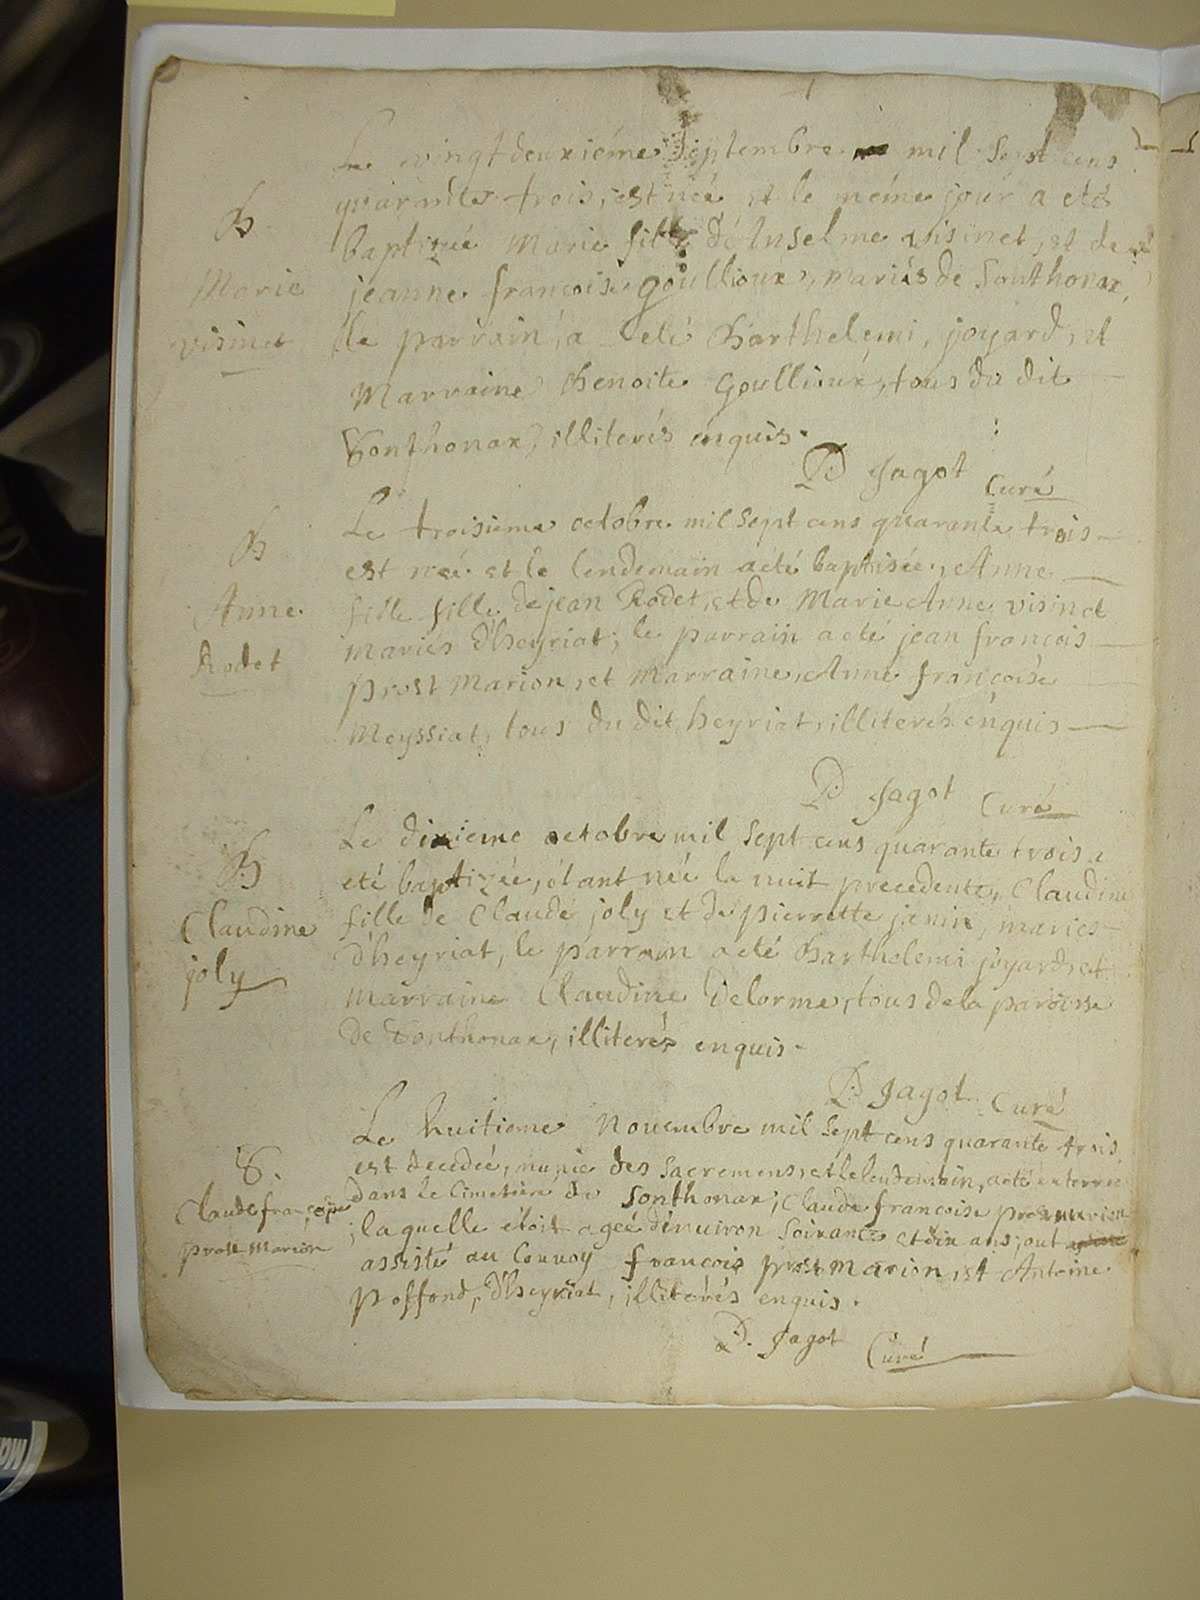 Le vingtdeuxiéme septembre mil sept cens
quarante trois, est née et le méme jour a eté
B
baptizée Marie fille d'Anselme visinet, et de
Marie
jeanne francoise goullioux, mariés de Sonthonax,
visinet
le parrain, a eté Barthelemi, joyard, et
Marraine Benoite Goullioux, tous du dit
Sonthonax, illiterés enquis.
D Jagot Curé
Le troisieme octobre mil sept cens quarante trois
B
est née et le lendemain a eté baptisée, Anne
Anne
fille fille de jean Rodet, et de Marie Anne visinet
Rodet
mariés d'heyriat, le parrain a eté jean francois
prost Marion, et Marraine, Anne francoise
Meyssiat, tous du dit heyriat, illiterés enquis
D Jagot Curé
Le dixieme octobre mil sept cens quarante trois a
B
eté baptizée, étant née la nuit precedente, Claudine
Claudine
fille de Claude joly et de pierrette janin, mariés
joly
d'heyriat, le parrain a eté Barthelemi joyard, et
marraine Claudine Delorme, tous de la paroisse
de Sonthonax, illiterés enquis
D. Jagot Curé
Le huitieme Novembre mil sept cens quarante trois
est decedée, munie des sacremens, et le lendemain, a eté enterrée
S.
dans le Cimetiére de Sonthonax, Claude francoise prost marion
Claude françoise
, laquelle étoit agée d'environ soixante et dix ans, ont
prost Marion
assisté au Convoy francois prost marion, et Antoine
Poffond, d'heyriat, illiterés enquis.
D. Jagot Curé